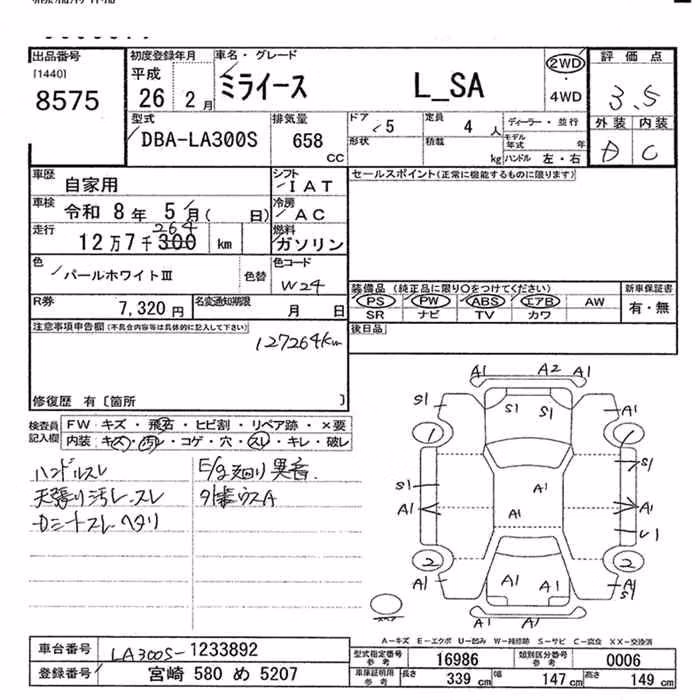 出品番号
[1440]
8575
初度登録年月
平成
26 2月
車名・グレード
ミライース L_SA
2WD
4WD
評価点
3.5
外装 内装
D C
型式
DBA-LA300S
排気量
658
CC
ドア
5
形状
定員
4 人
積載
kg
ディーラー・並行
モデル年式 年
ハンドル 左・右
車歴
自家用
車検
令和 8年 5月( 日)
走行
264
12万7千300 km
シフト
IAT
冷房
AC
燃料
ガソリン
色
パールホワイトⅢ
色替
色コード
W24
R券
7,320円
名変通知期限
月 日
セールスポイント(正常に機能するものに限ります)
装備品 (純正品に限り○をつけてください)
PS PW ABS エアB AW
SR ナビ TV カワ
新車保証書
有・無
後日品
注意事項申告欄(不具合内容等は具体的に記入して下さい)
127264km
修復歴 有〔箇所 〕
検査員記入欄
FW キズ・飛石・ヒビ割・リペア跡・×要
内装:キズ・汚レ・コゲ・穴・スレ・キレ・破レ
ハンドルスレ
天張り汚レ、スレ
Dシートスレ ヘタリ
E/g廻り異音
外装ウスA
A1 A2 A1
S1 S1 S1 A1
1 1
S1
S1 A1
A1 A1 A1
U1
2 2
A1 A1 A1 A1
S1
A1 A1
A-キズ E-エクボ U-凹み W-補修跡 S-サビ C-腐食 XX-交換済
車台番号
LA300S-1233892
登録番号
宮崎 580 め 5207
型式指定番号
参考
16986
類別区分番号
参考
0006
車庫証明用
参考
長さ 339 cm
幅 147 cm
高さ 149 cm